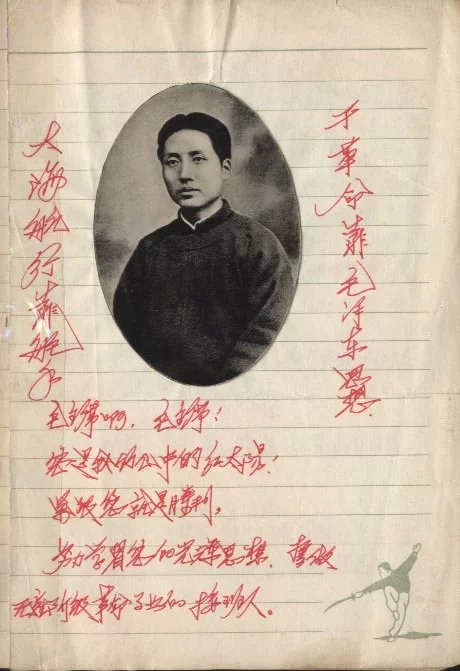 大海航行靠舵手
干革命靠毛泽东思想
毛主席啊，毛主席！
您是我们心中的红太阳！
紧跟您就是勝利。
努力学習您的光辉思想，誓做
无产阶级革命事业的接班人。